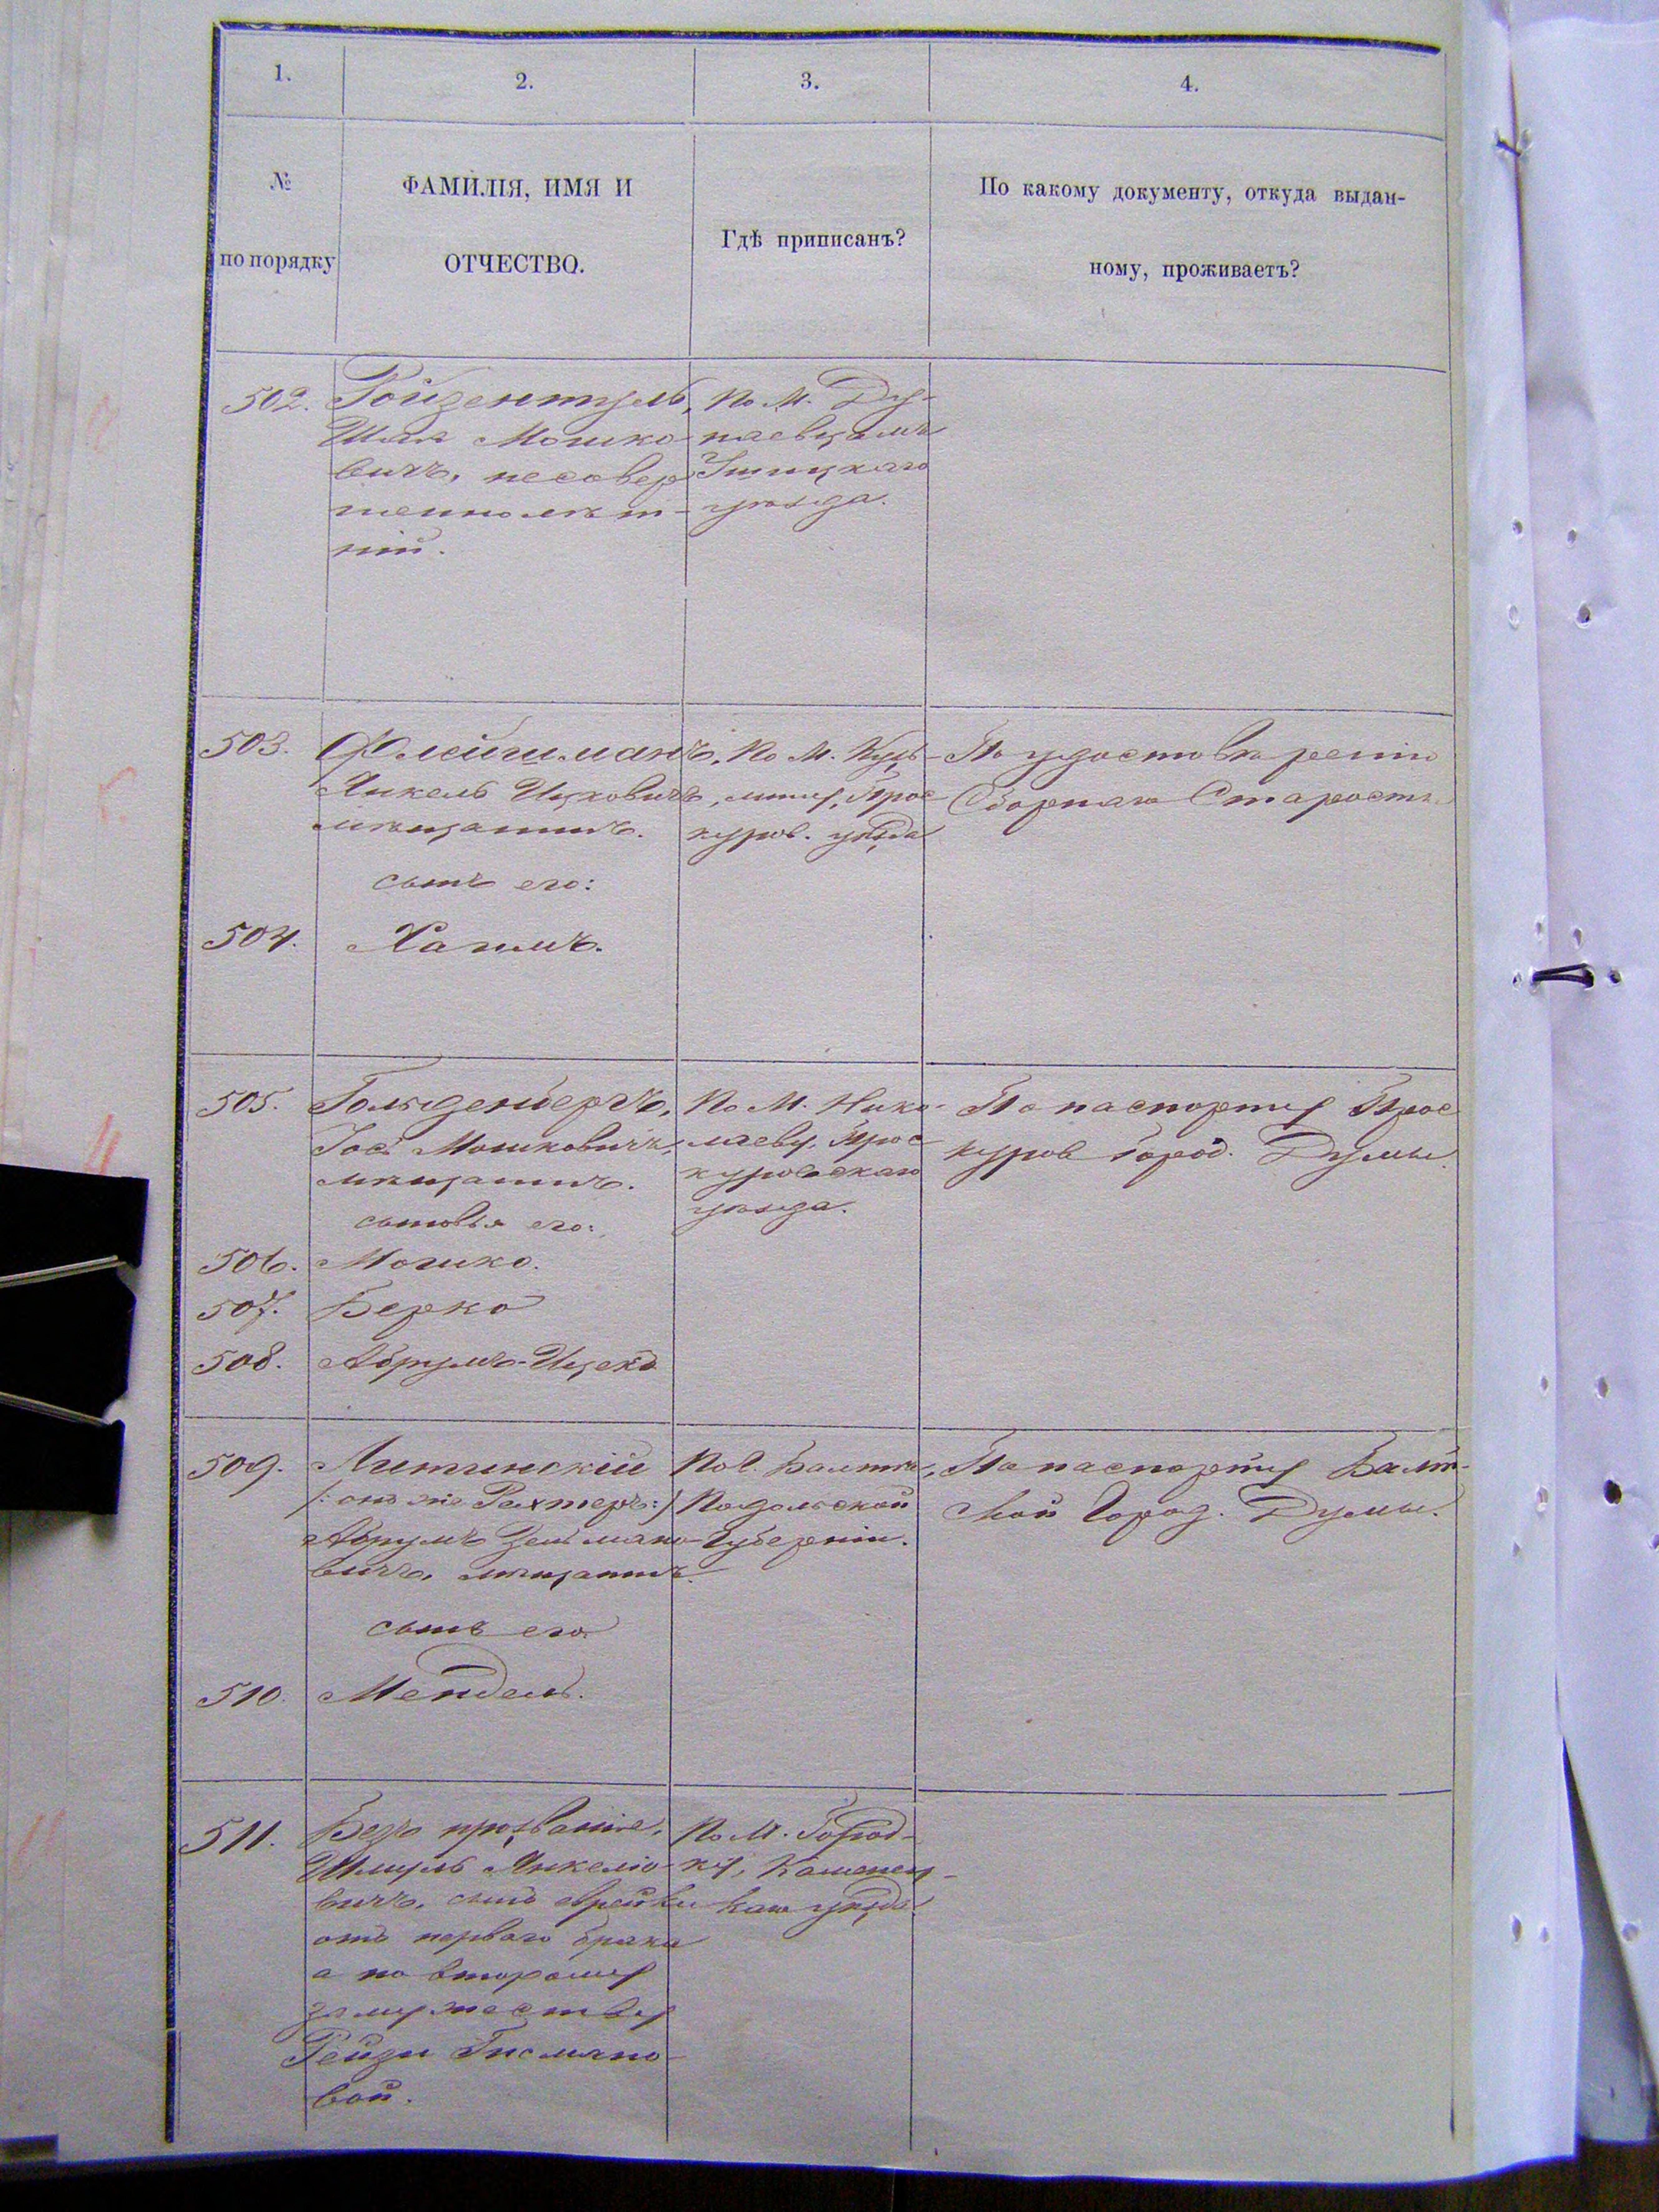 1.
2.
3.
4.
№
по порядку
ФАМИЛІЯ, ИМЯ И
ОТЧЕСТВО.
Гдѣ приписанъ?
По какому документу, откуда выдан-
ному, проживаетъ?
502.
Ройзентуль,
Шая Мошко-
вичъ, несовер
шеннолѣт-
ній.
По М. Ду-
наевцамъ
Ушицкаго
уѣзда.
503.
Флейшманъ,
Янкель Ицковичъ,
мѣщанинъ.
сынъ его:
По М. Кузь-
мину, Прос
куров. уѣзда
По удостовѣренію
Сборнаго Старосты
504.
Хаимъ.
505.
Гольденбергъ,
Іосъ Мошковичъ,
мѣщанинъ.
сыновья его:
По М. Нико-
лаеву, Прос
куровскаго
уѣзда.
По паспорту Прос
куров Город. Думы.
506.
Мошко.
507.
Берко
508.
Абрумъ-Ицекъ
509.
Литинскій
/: онъ же Рахтеръ :/
Абрумъ Зельмано-
вичъ, мѣщанинъ.
сынъ его:
По г. Балтѣ,
Подольской
Губерніи.
По паспорту Балт-
ской Город. Думы.
510.
Мендель.
511.
Безъ прозванія,
Шмуль Янкеліо-
вичъ, сынъ Фрейвы
отъ перваго брака
а по второму
замужеству
Рейзи Гисмано-
вой.
По М. Город-
ку, Каменец-
каго уѣзда.